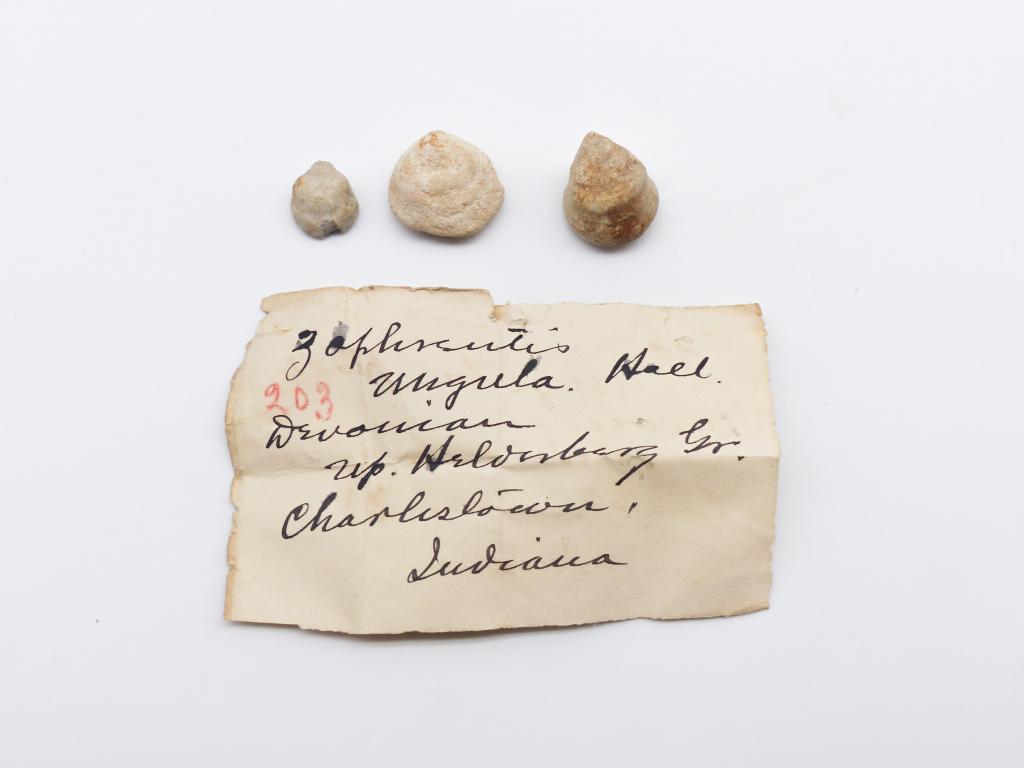 Zaphrentis
Ungula. Hall.
203
Devonian
Up. Helderberg Gr.
Charlestown,
Indiana